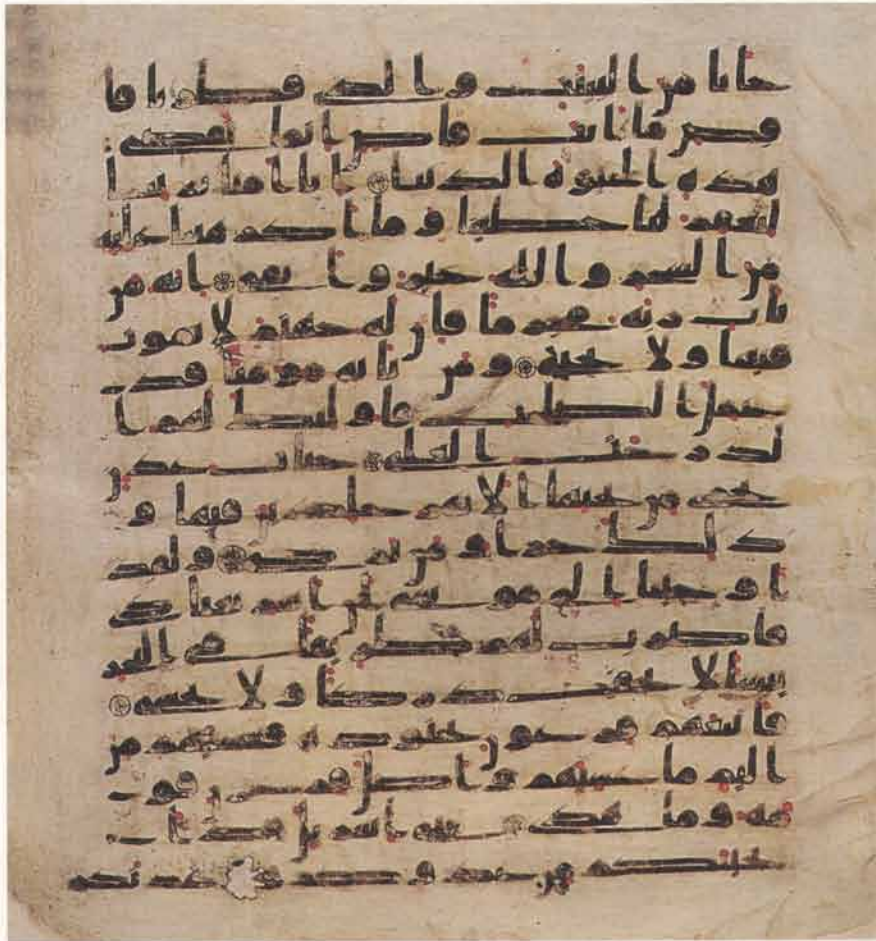 جانا من البينت والذى فطرنا فا
قض ما انت قاض انما تقضى
هذه الحيوة الدنيا انا امنا بربنا
ليغفر لنا خطينا وما اكرهتنا عليه
من السحر والله خير وابقى انه من
يات ربه مجرما فان له جهنم لا يموت
فيها ولا يحيى ومن ياته مومنا قد
عمل الصلحت فاوليك لهم ا
لدرجت العلى جنت عدن
تجرى من تحتها الانهر خلدين فيها و
ذلك جزا من تزكى ولقد
اوحينا الى موسى ان اسر بعبادى
فاضرب لهم طريقا فى البحر
يبسا لا تخف دركا ولا تخشى
فاتبعهم فرعون بجنوده فغشيهم من
اليم ما غشيهم واضل فرعون قو
مه وما هدى يبنى اسريل قد ا
نجينكم من عدوكم ووعدنكم